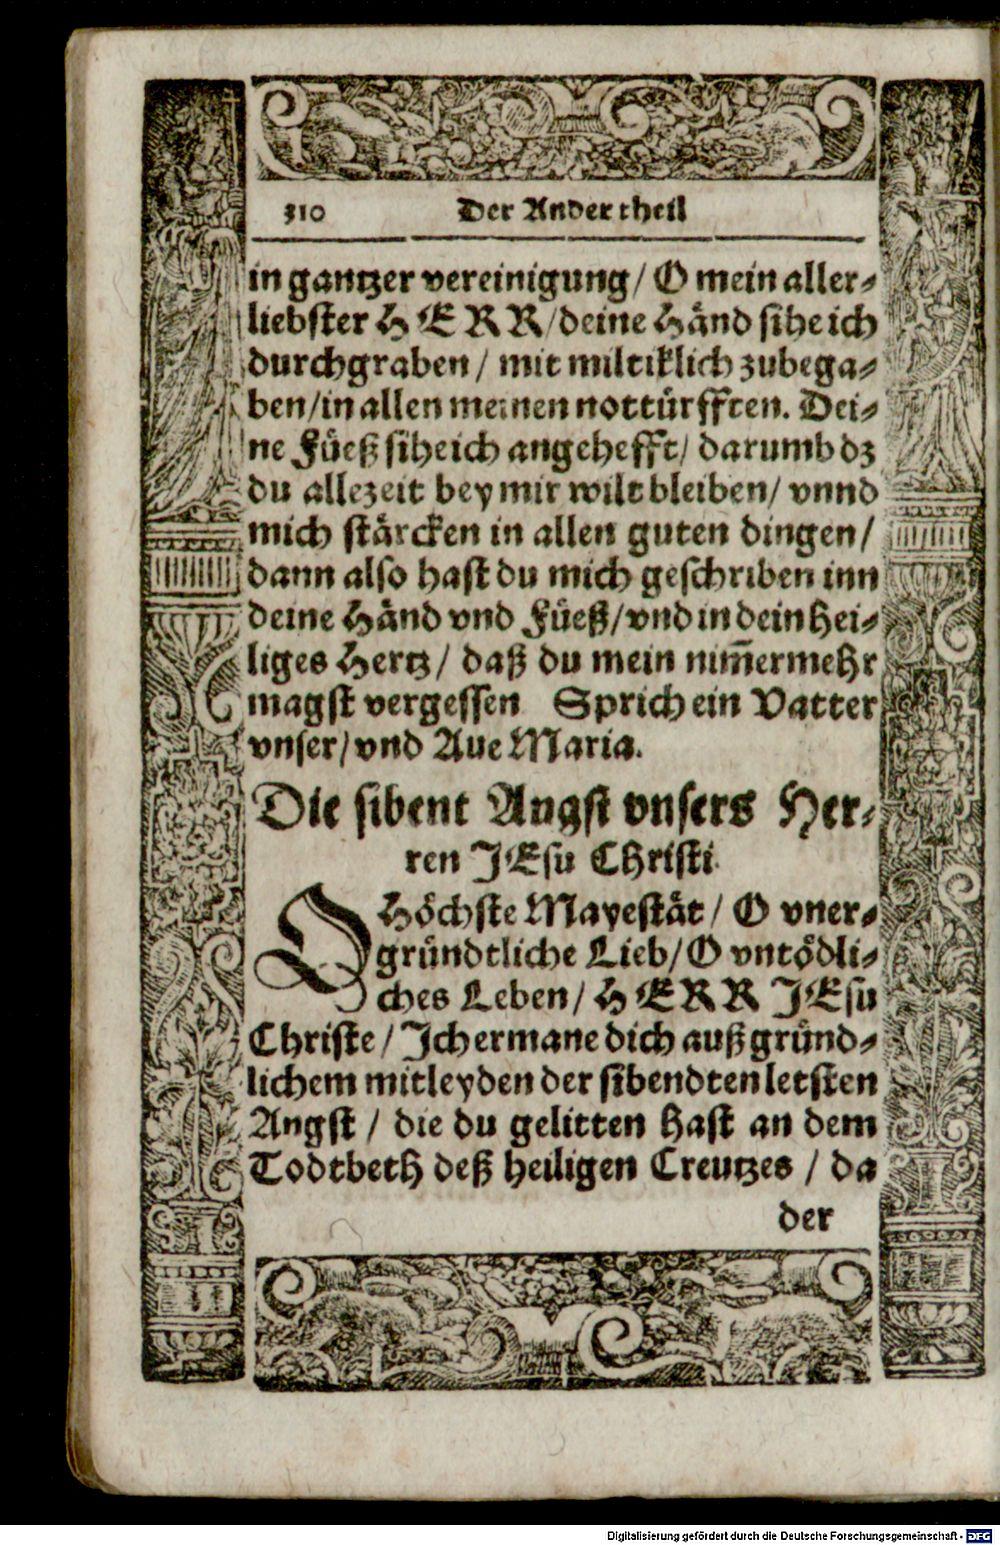 310 Der Ander theil
in gantzer vereinigung / O mein aller⸗
liebster HERR / deine Händ sihe ich
durchgraben / mit miltiklich zubega⸗
ben / in allen meinen nottürfften. Dei⸗
ne Füeß sihe ich angehefft / darumb dz
du allezeit bey mir wilt bleiben / vnnd
mich stärcken in allen guten dingen /
dann also hast du mich geschriben inn
deine Händ vnd Füeß / vnd in dein hei⸗
liges Hertz / daß du mein nim̄ermehr
magst vergessen Sprich ein Vatter
vnser / vnd Aue Maria.
Die sibent Angst vnsers Her⸗
ren JEsu Christi
O Höchste Mayestät / O vner⸗
gründtliche Lieb / O vntödli⸗
ches Leben / HERR JEsu
Christe / Jch ermane dich auß gründ⸗
lichem mitleyden der sibendten letsten
Angst / die du gelitten hast an dem
Todtbeth deß heiligen Creutzes / da
der
Digitalisierung gefördert durch die Deutsche Forschungsgemeinschaft - DFG